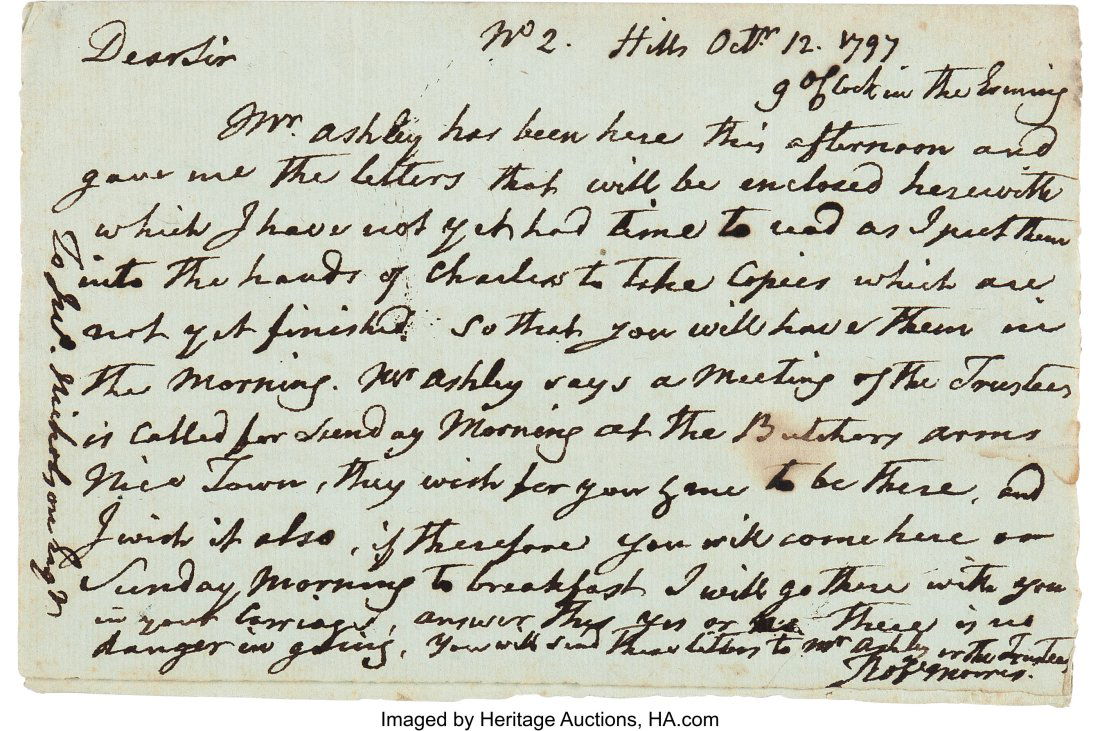 No 2. Hills Octr. 12. 1797
Dear Sir
9 oClock in the Evening
Mr. Ashley has been here this afternoon and
gave me the letters that will be enclosed herewith
which I have not yet had time to read as I put them
into the hands of Charles to take Copies which are
not yet finished. So that you will have them in
the Morning. Mr Ashley says a Meeting of the Trustees
is called for Sunday Morning at the Butchers arms
Nice Town, they wish for you & me to be there, and
I wish it also, if therefore you will come here on
Sunday Morning to breakfast I will go there with you
in your Carriage, answer this yes or no There is no
danger in going, You will send these letters to Mr Ashley or the Trustees
Robt Morris.
To Jno. Nicholson Esqr
Imaged by Heritage Auctions, HA.com